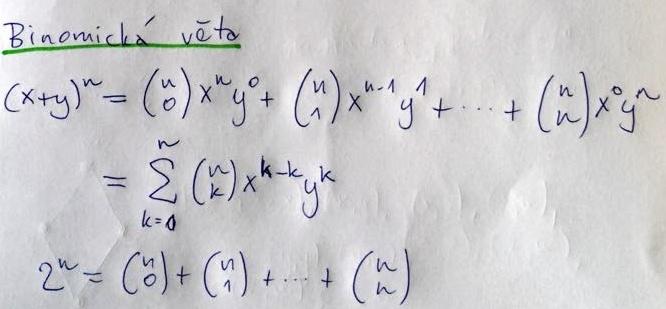 Binomická věta
(x+y)^n = (n 0) x^n y^0 + (n 1) x^{n-1} y^1 + ... + (n n) x^0 y^n
= ∑_{k=0}^{n} (n k) x^{k-k} y^k
2^n = (n 0) + (n 1) + ... + (n n)